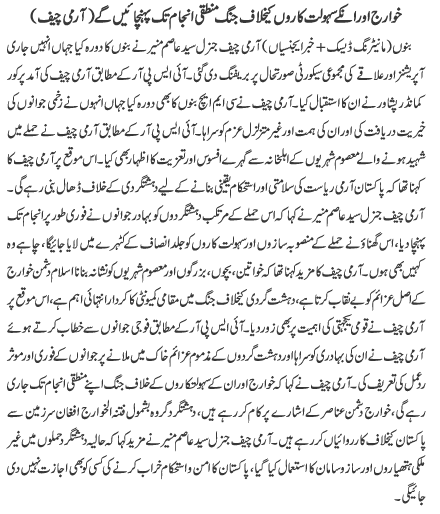 خوارج اور انکے سہولت کاروں کیخلاف جنگ منطقی انجام تک پہنچائیں گے (آرمی چیف)
بنوں (مانیٹرنگ ڈیسک + خبر ایجنسیاں) آرمی چیف جنرل سید عاصم منیر نے بنوں کا دورہ کیا جہاں انہیں جاری
آپریشنز اور علاقے کی مجموعی سیکورٹی صورتحال پر بریفنگ دی گئی۔ آئی ایس پی آر کے مطابق آرمی چیف کی آمد پر کور
کمانڈر پشاور نے ان کا استقبال کیا۔ آرمی چیف نے سی ایم ایچ بنوں کا بھی دورہ کیا جہاں انہوں نے زخمی جوانوں کی
خیریت دریافت کی اور ان کی ہمت اور غیر متزلزل عزم کو سراہا۔ آئی ایس پی آر کے مطابق آرمی چیف نے حملے میں
شہید ہونے والے معصوم شہریوں کے اہلخانہ سے گہرے افسوس اور تعزیت کا اظہار بھی کیا۔ اس موقع پر آرمی چیف کا
کہنا تھا کہ پاکستان آرمی ریاست کی سلامتی اور استحکام یقینی بنانے کے لیے دہشتگردی کے خلاف ڈھال بنی رہے گی۔
آرمی چیف جنرل سید عاصم منیر نے کہا کہ اس حملے کے مرتکب دہشتگردوں کو بہادر جوانوں نے فوری طور پر انجام تک
پہنچا دیا، اس گھناؤنے حملے کے منصوبہ سازوں اور سہولت کاروں کو جلد انصاف کے کٹہرے میں لایا جائیگا، چاہے وہ
کہیں بھی ہوں۔ آرمی چیف کا مزید کہنا تھا کہ خواتین، بچوں، بزرگوں اور معصوم شہریوں کو نشانہ بنانا اسلام دشمن خوارج
کے اصل عزائم کو بے نقاب کرتا ہے، دہشت گردی کیخلاف جنگ میں مقامی کمیونٹی کا کردار انتہائی اہم ہے، اس موقع پر
آرمی چیف نے قومی یکجہتی کی اہمیت پر بھی زور دیا۔ آئی ایس پی آر کے مطابق فوجی جوانوں سے خطاب کرتے ہوئے
آرمی چیف نے ان کی بہادری کو سراہا اور دہشت گردوں کے مذموم عزائم خاک میں ملانے پر جوانوں کے فوری اور موثر
ردعمل کی تعریف کی۔ آرمی چیف نے کہا کہ خوارج اور ان کے سہولتکاروں کے خلاف جنگ اپنے منطقی انجام تک جاری
رہے گی، خوارج دشمن عناصر کے اشارے پر کام کر رہے ہیں، دہشتگرد گروہ بشمول فتنۃ الخوارج افغان سرزمین سے
پاکستان کیخلاف کارروائیاں کر رہے ہیں۔ آرمی چیف جنرل سید عاصم منیر نے مزید کہا کہ حالیہ دہشتگرد حملوں میں غیر
ملکی ہتھیاروں اور ساز و سامان کا استعمال کیا گیا، پاکستان کا امن و استحکام خراب کرنے کی کسی کو بھی اجازت نہیں دی
جائیگی۔